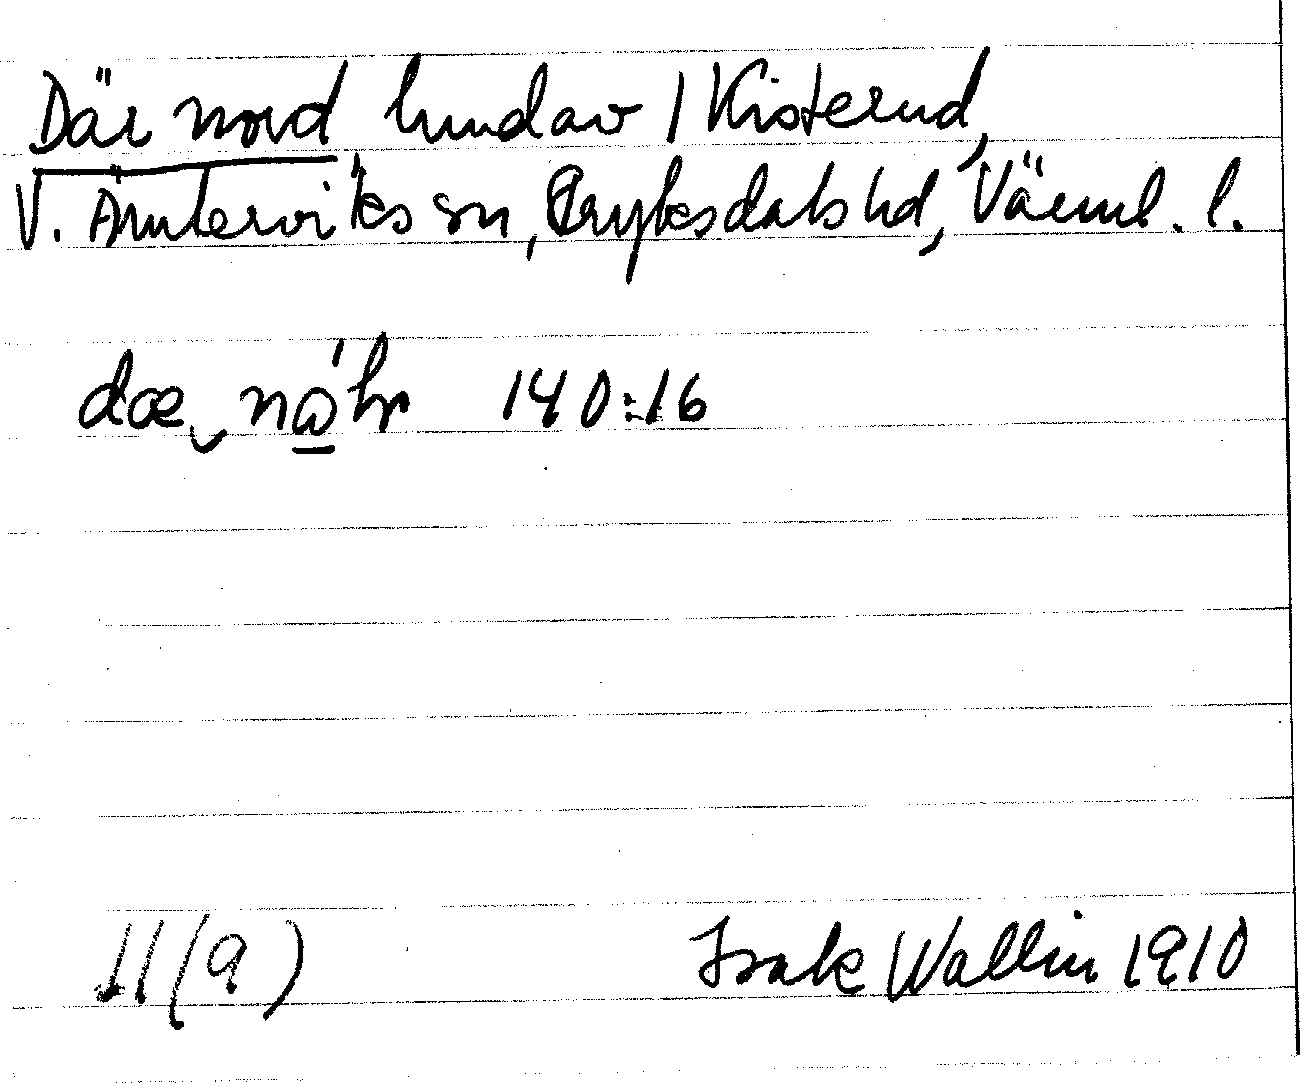 Där nord hmdav / Kisterud,
V. Ämterviks sn, Fryksdals hd, Värml. l.
dæ nǻ̱hr 140:16
11(a)
Isak Wallin 1910